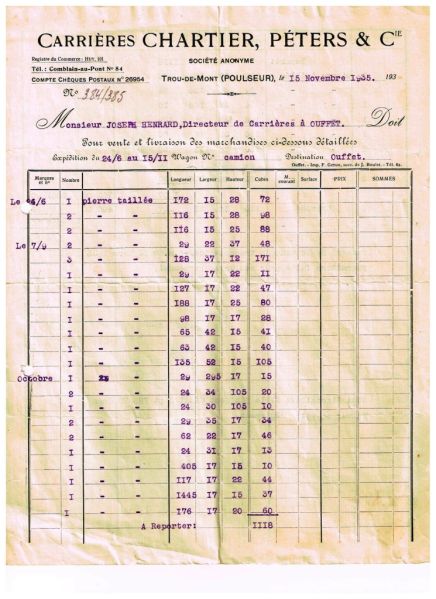 CARRIÈRES CHARTIER, PÉTERS & CIE
Registre du Commerce: HUY, 101
SOCIÉTÉ ANONYME
Tél.: Comblain-au-Pont No 84
COMPTE CHÈQUES POSTAUX N° 26954
TROU-DE-MONT (POULSEUR), le 15 Novembre 1935. 193
No 384/385
Monsieur JOSEPH HENRARD, Directeur de Carrières à OUFFET. Doit
Pour vente et livraison des marchandises ci-dessous détaillées
Expédition du 24/6 au 15/II Wagon No camion Destination Ouffet.
Marques et nos Nombre Longueur Largeur Hauteur Cubes M. courant Surface PRIX SOMMES
Le 24/6 I pierre taillée 172 15 28 72
2 - - 116 15 28 98
2 - - 116 15 25 88
Le 7/9 2 - - 29 22 37 48
3 - - 128 37 12 171
I - - 29 17 22 11
I - - 127 17 22 47
I - - 188 17 25 80
I - - 98 17 17 28
I - - 65 42 15 41
I - - 63 42 15 40
I - - 135 52 15 105
Octobre I - 29 295 17 15
2 - - 24 34 105 20
I - - 24 30 105 10
2 - - 29 35 17 34
2 - - 62 22 17 46
I - - 24 31 17 13
I - - 405 17 15 10
I - - 117 17 22 44
I - - 1445 17 15 37
I - - 176 17 20 60
A Reporter: III8